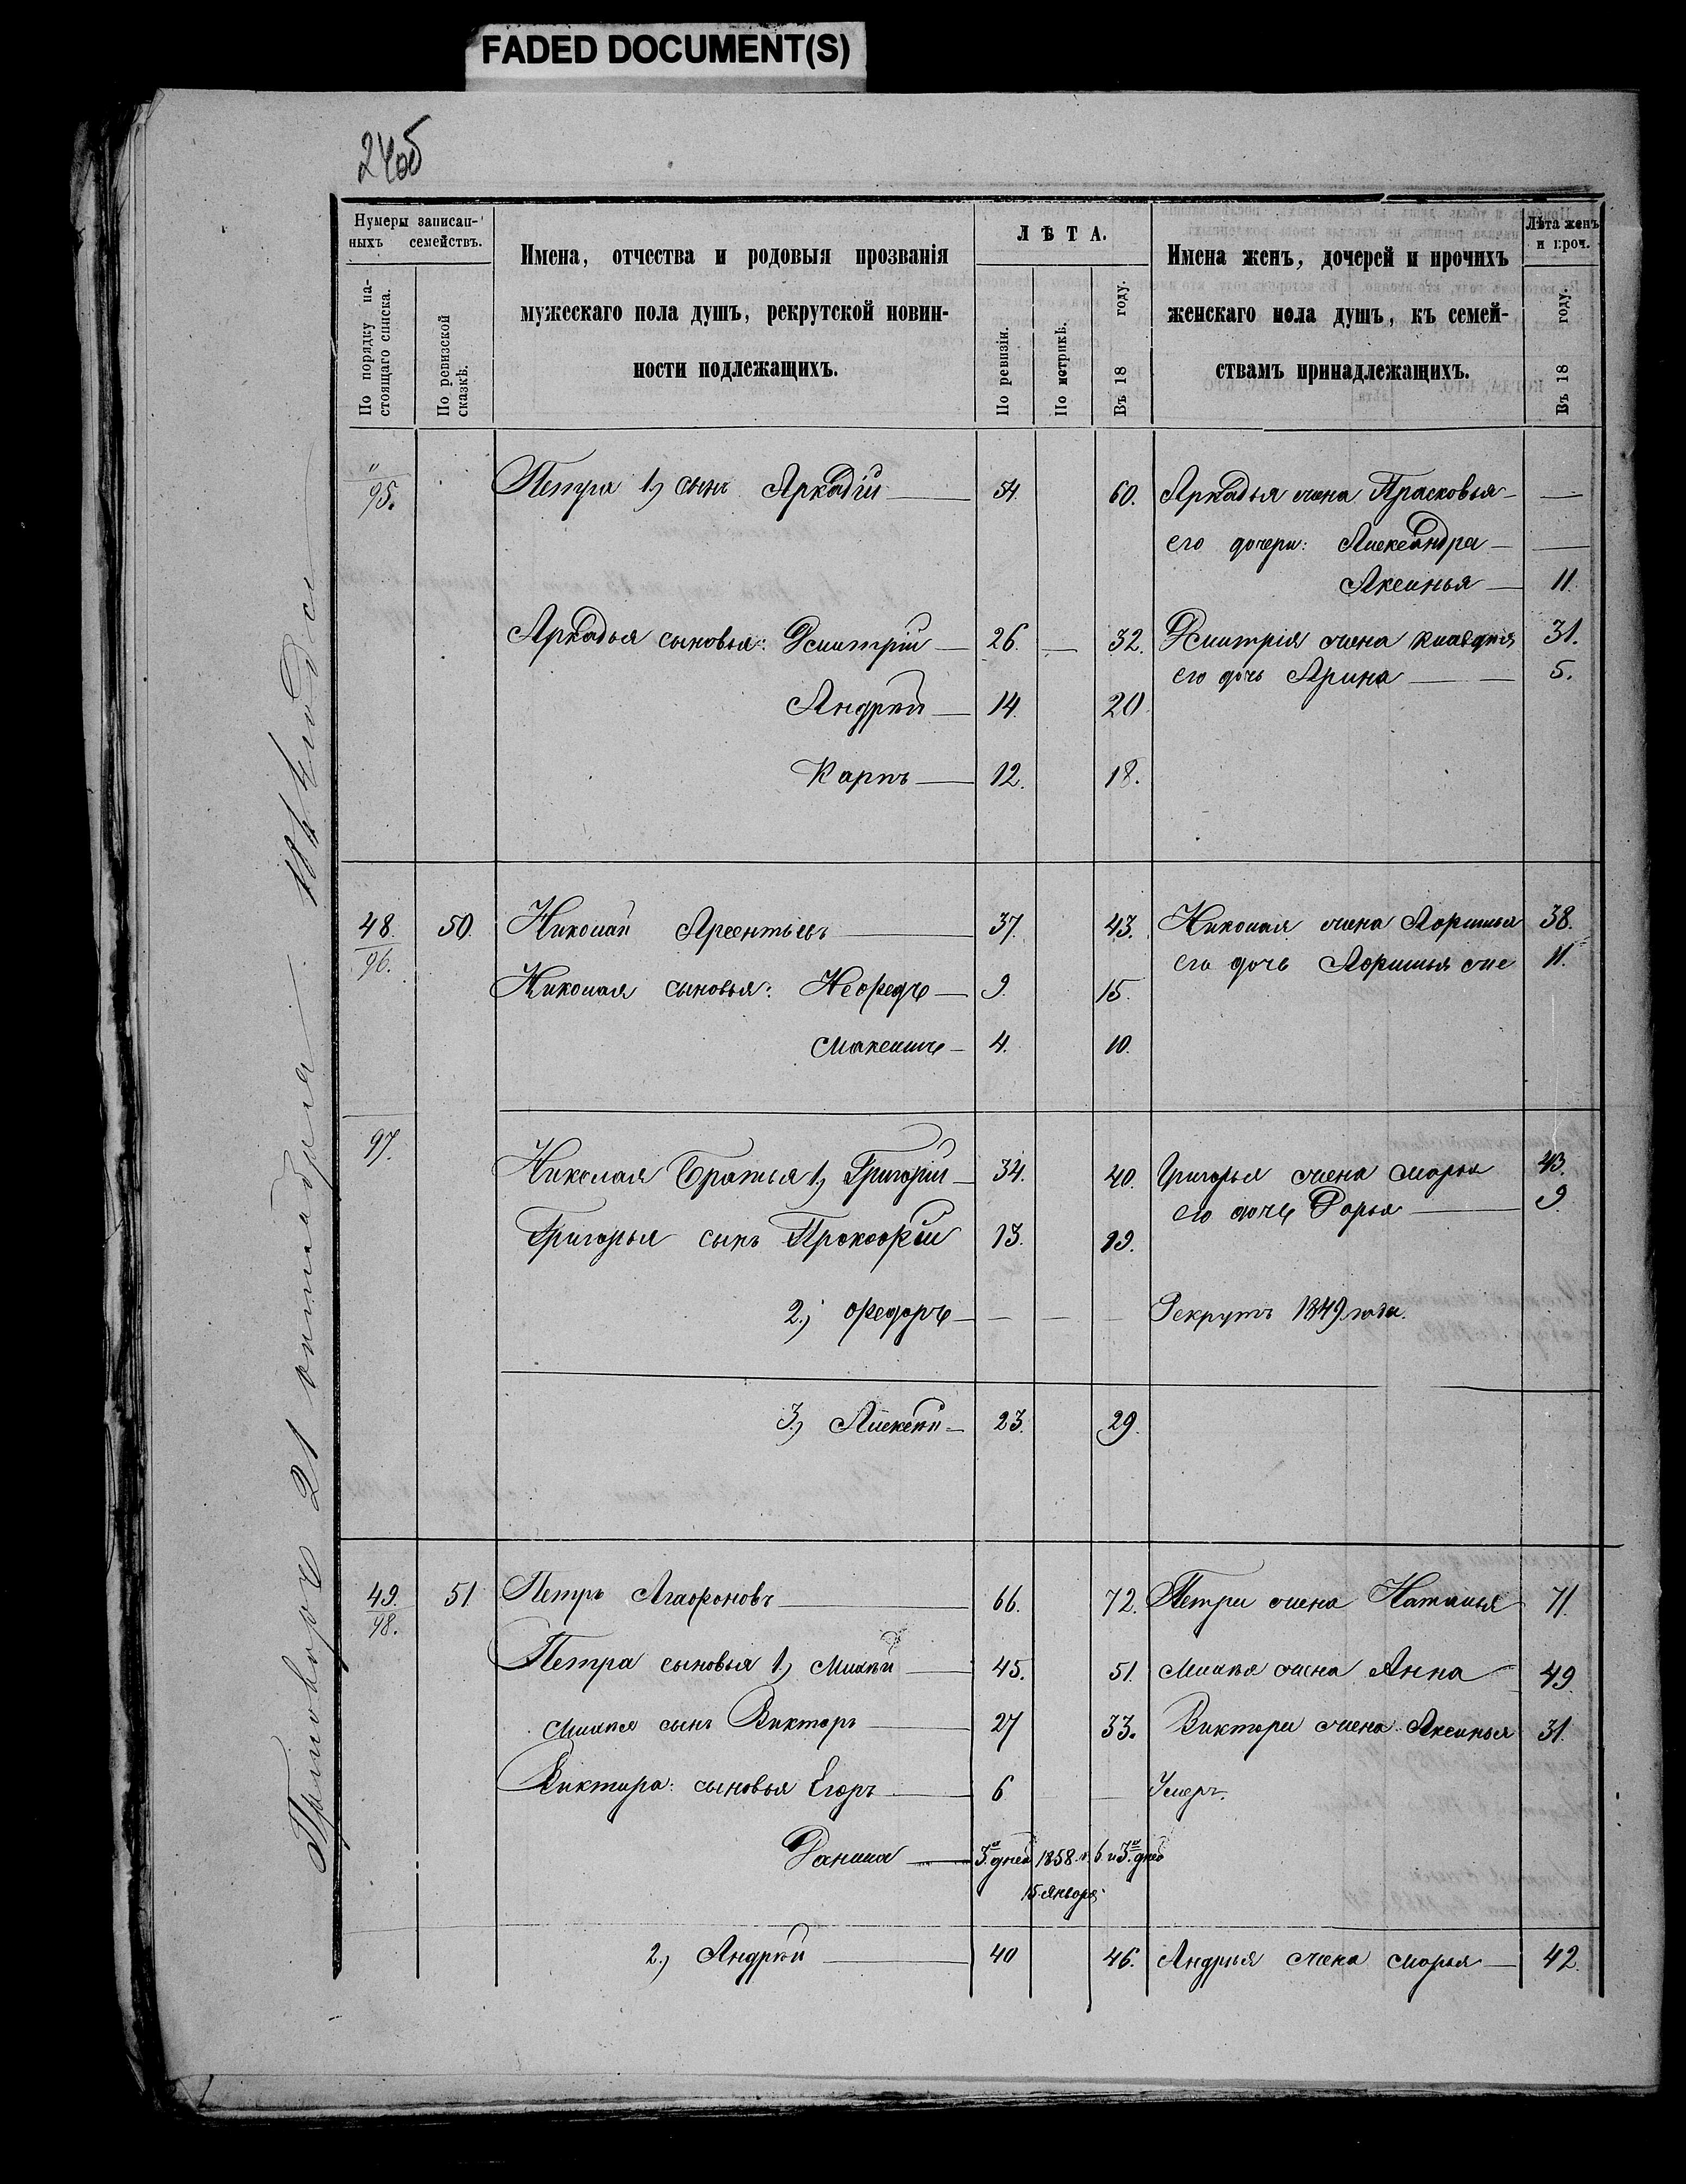 FADED DOCUMENT(S)
24об
Нумеры записан-
ныхъ семействъ.
По порядку на-
стоящаго списка.
По ревизской
сказкѣ.
Имена, отчества и родовыя прозванія
мужескаго пола душъ, рекрутской повин-
ности подлежащихъ.
ЛѢТА.
По ревизіи.
По метрикѣ.
Въ 18 году.
Имена женъ, дочерей и прочихъ
женскаго пола душъ, къ семей-
ствамъ принадлежащихъ.
Лѣта женъ
и проч.
Въ 18 году.
" 95. Петра 1) сынъ Аркадій — 54. 60. Аркадья жена Прасковья — —
его дочери: Александра — —
Аксинья — 11.
Аркадья сыновья: Дмитрій — 26. — 32. Дмитрія жена Клавдія 31.
его дочь Арина — 5.
Андрей — 14. 20
Карпъ — 12. 18.
48. 96. 50. Николай Арсентьевъ — 37. 43. Николая жена 38.
его дочь 11.
Николая сыновья: Нефедъ — 9. 15.
Максимъ — 4. 10.
97. Николая Братья 1) Григорій — 34. 40. Григорья жена Марья 43.
его дочь Дарья — 9.
Григорья сынъ Прокофій 13. 19.
2.) Федоръ — — — — Рекрутъ 1849 года.
3.) Алексѣй — 23. 29.
49. 98. 51 Петръ Агафоновъ — 66. 72. Петра жена Наталья 71.
Петра сыновья 1.) Михѣй — 45. 51. Михѣя жена Анна — 49.
Михѣя сынъ Викторъ — 27 33. Виктора жена Аксинья 31.
Виктора: сыновья Егоръ — 6 — Умеръ.
Данила — 3х дней 1858. г. 6 и 3х дней
15 января
2.) Андрей — 40 46. Андрея жена Марья — 42.
21